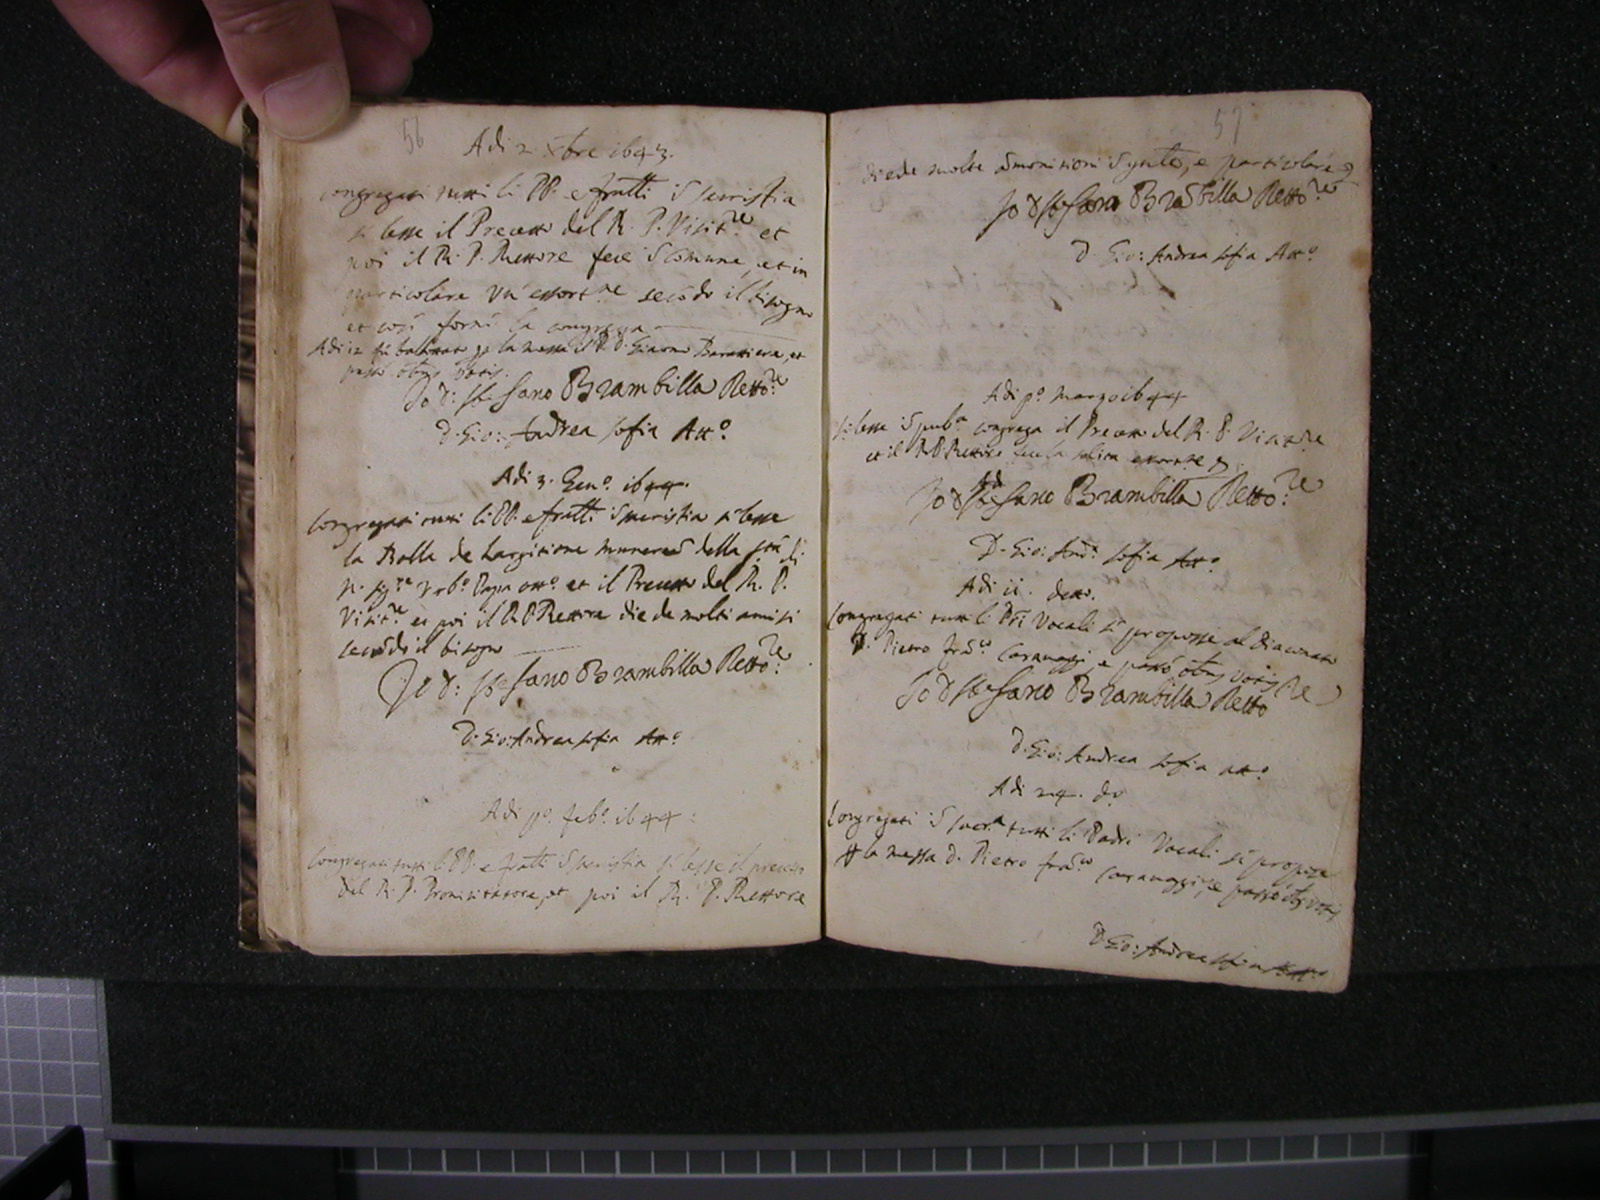 56
Adi 2 Xbre 1643.
Congregati tutti li PP. e fratti i sacristia
si lesse il Precetto del R. P. Visit.re et
poi il R. P. Rettore fece i Comune, et in
particolare un' essort.ne secõdo il bisogno
et così fornì la congrega
Adi 12 fù ballottato p la messa il P. D. Giacomo et
passò oibus votis.
Io D: Stefano Brambilla Retto.re
D. Gio: Andrea Sofia Att.o
Adi 3. Gen.o 1644.
Congregati tutti li PP. e fratti i sacristia si lesse
la Bolla de Largitione munerũ della di
N. Sig.re Urb.o Papa ott.o et il Precetto del R. P.
Visit.re et poi il R. P. Rettore diede molti avvisi
secõdo il bisogno
Io D: Stefano Brambilla Retto.re
D. Gio: Andrea Sofia Att.o
Adi p.o feb.o 1644:
Congregati tutti li PP. e fratti i sacristia si lesse il precetto
del R. P. Provisitatore, et poi il R. P. Rettore
57
diede molte āmonitioni i gñle, e particolare
Io D Stefano Brambilla Retto.re
D. Gio: Andrea Sofia Att.o
Adi p.o marzo 1644
Si lesse i pub.a congrega il Precetto del R. P. Visit.re
et il R. P. Rettore fece la solita essort.ne
Io D Stefano Brambilla Retto.re
D. Gio: And.a Sofia Att.o
Adi 11. detto.
Congregati tutti li Pri Vocali si propose al Diaconato
D. Pietro Frã.co Caravaggi, e passò oibus votis
Io D Stefano Brambilla Retto.re
D. Gio: Andrea Sofia att.o
Adi 24. d.o
Congregati i sacr.a tutti li Padri Vocali si propose
p la messa D. Pietro frã.co Caravaggi, e passò oibus votis
D. Gio: Andrea Sofia Att.o